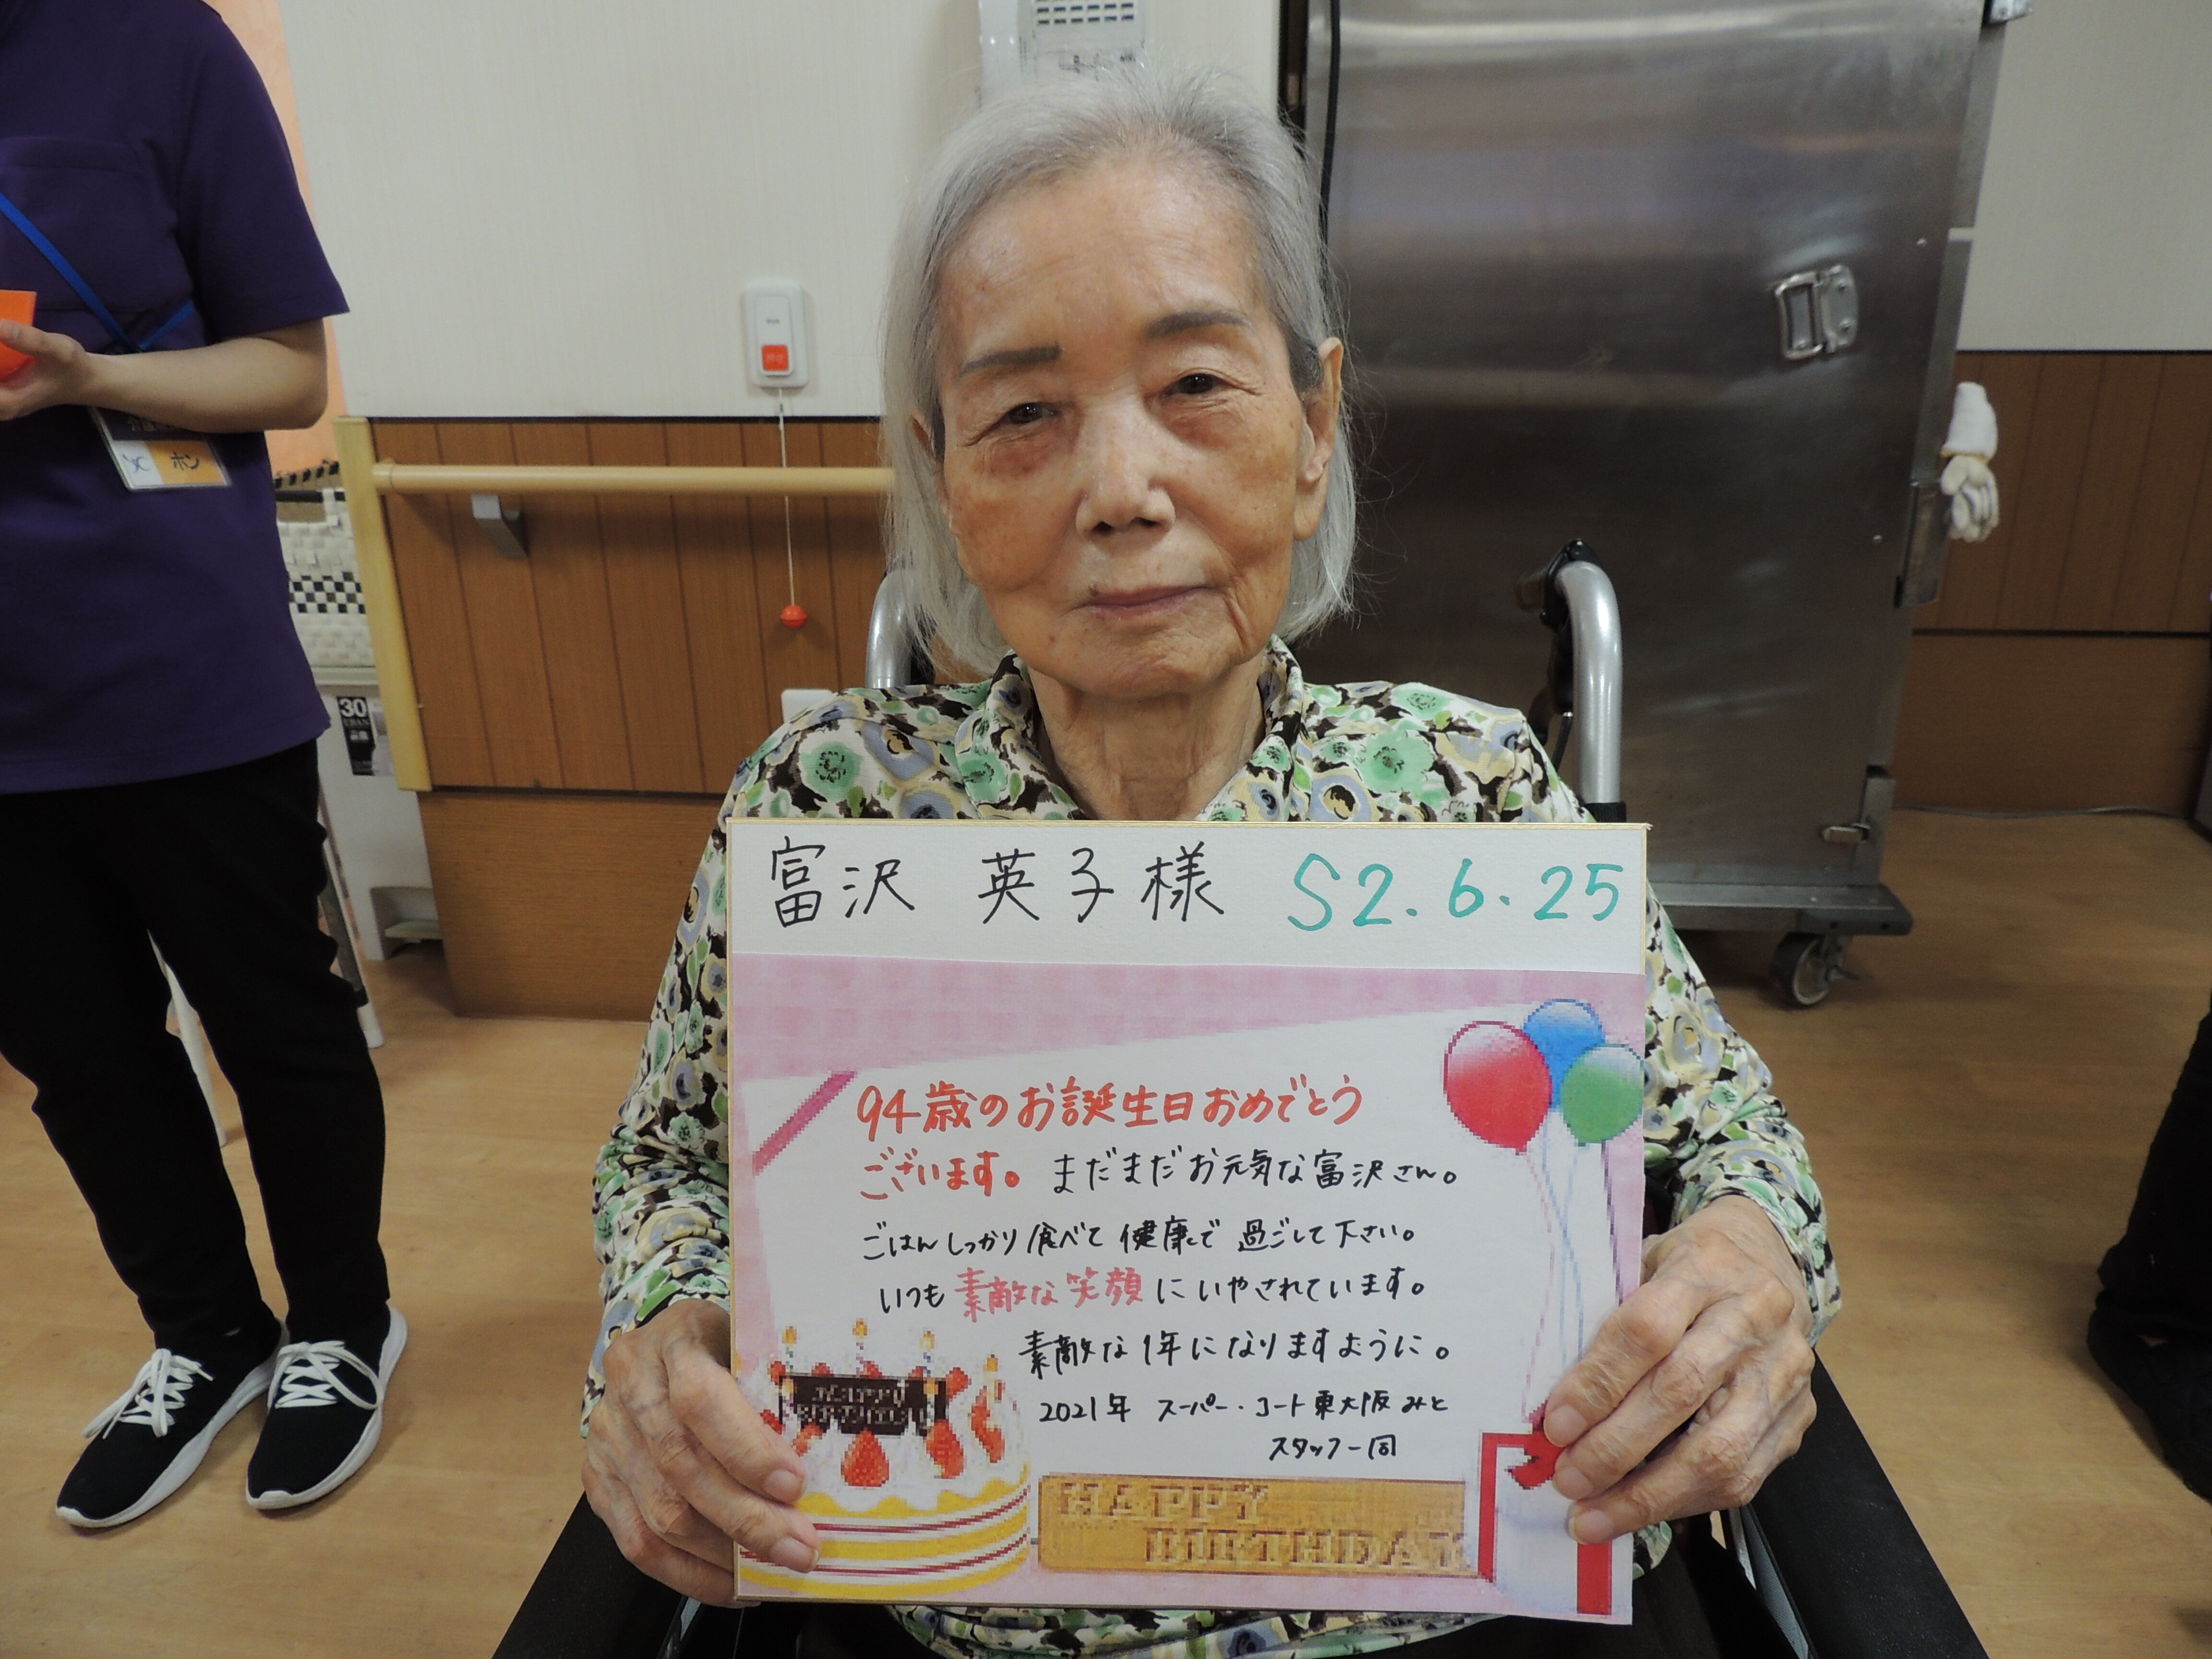 富沢 英子様 S2.6.25
94歳のお誕生日おめでとう
ございます。まだまだお元気な富沢さん。
ごはんしっかり食べて健康で過ごして下さい。
いつも素敵な笑顔にいやされています。
素敵な1年になりますように。
2021年 スーパー・コート東大阪みと
スタッフ一同
HAPPY
BIRTHDAY
HAPPY
BIRTHDAY
ホン
30